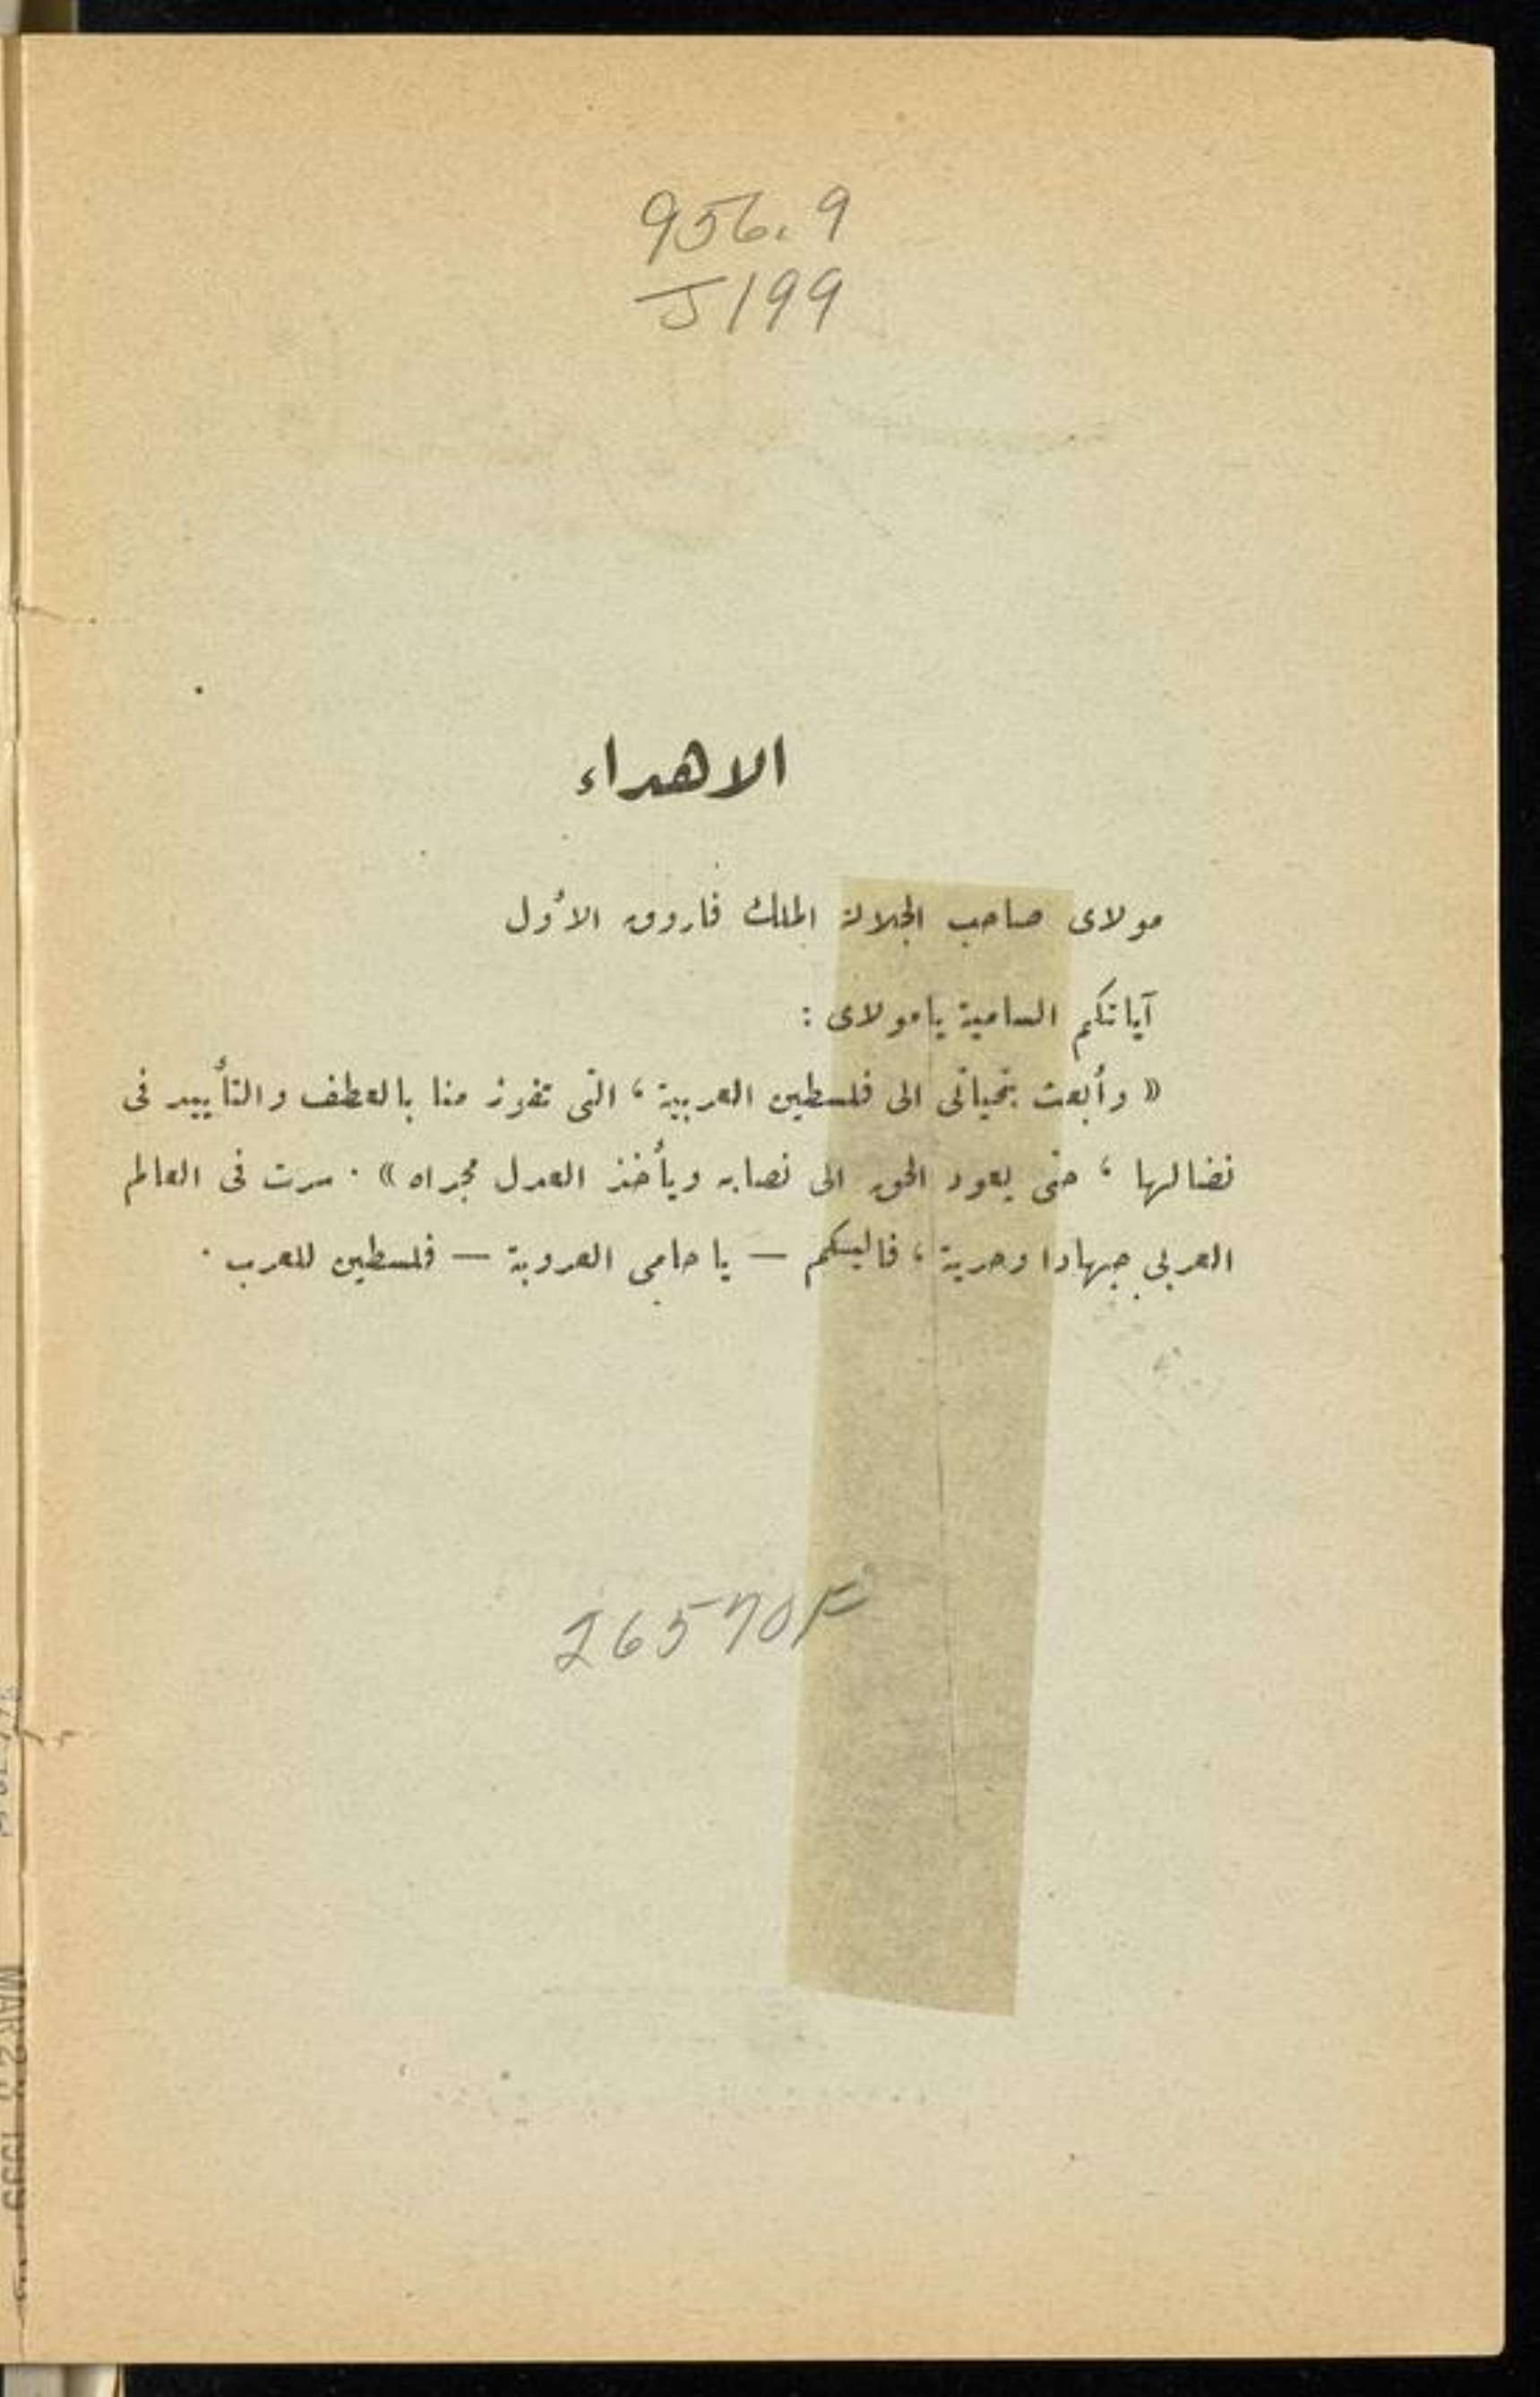 956.9
J199
الاهداء
مولاى صاحب الجلالة الملك فاروق الأول
آياتكم السامية يامولاى :
« وأبعث بتحياتى الى فلسطين العربية ، التى تفوز منا بالعطف والتأييد فى
نضالها ، حتى يعود الحق الى نصابه ويأخذ العدل مجراه » . سرت فى العالم
العربى جهادا وحرية ، فاليكم — يا حامى العروبة — فلسطين للعرب .
26570F